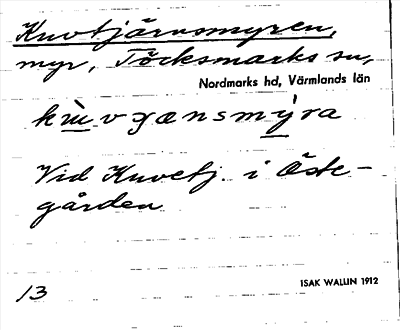 Kuvtjärnsmyren,
myr, Töcksmarks sn,
Nordmarks hd, Värmlands län
kùvʒænsmy̾ra
Vid Kuvetj. i Öste-
gården
ISAK WALLIN 1912
13